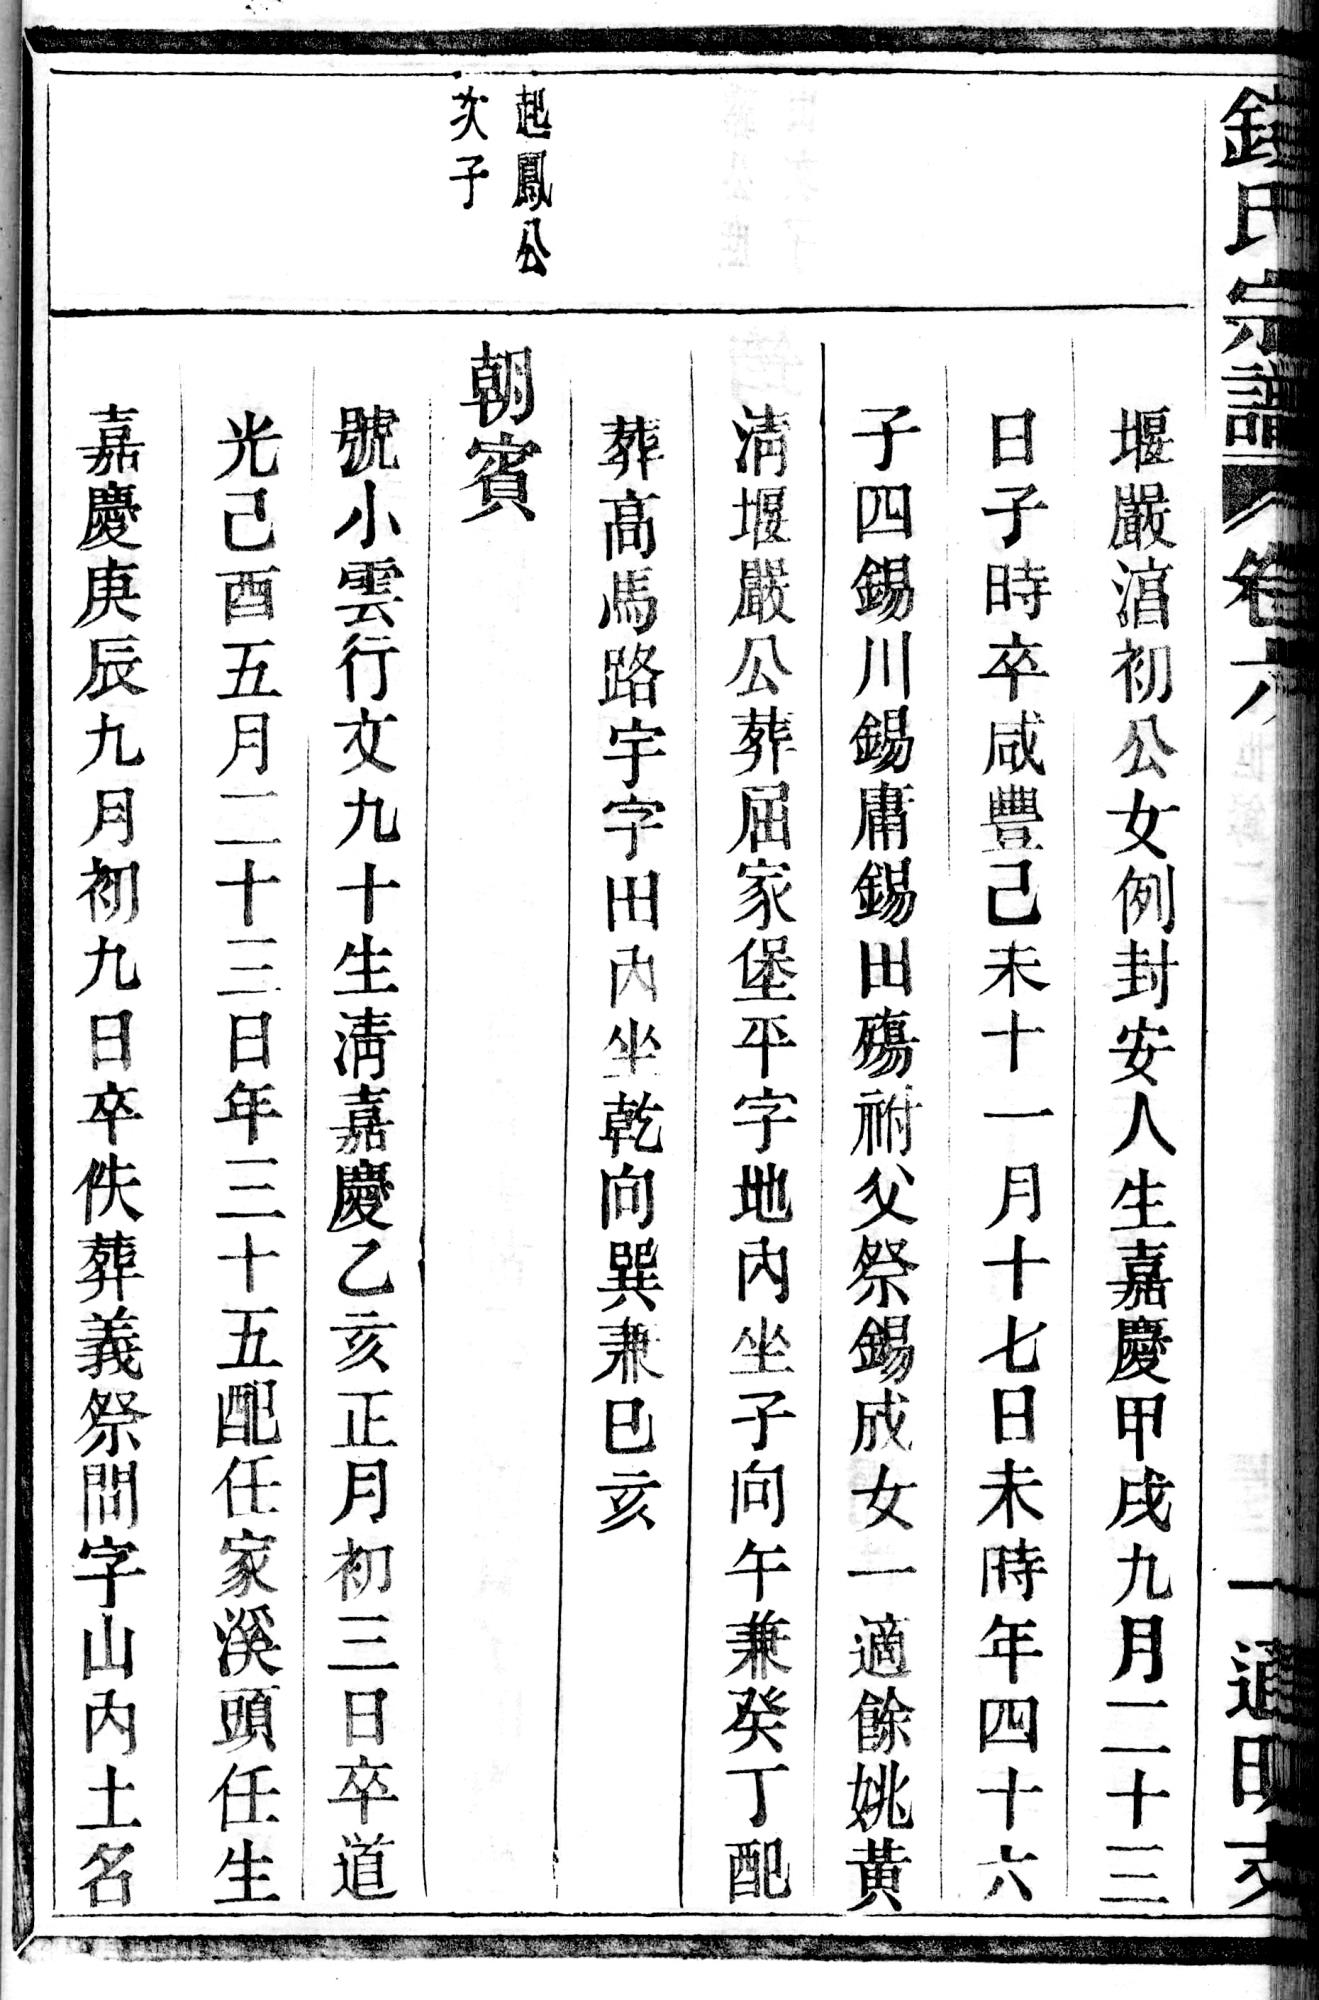 鍾氏宗譜 卷六
堰嚴淯初公女例封安人生嘉慶甲戌九月二十三
日子時卒咸豐己未十一月十七日未時年四十六
子四錫川錫庸錫田殤祔父祭錫成女一適餘姚黃
淸堰嚴公葬屈家堡平字地內坐子向午兼癸丁配
葬高馬路宇字田內坐乾向巽兼巳亥
起鳳公
次子
朝賓
號小雲行文九十生淸嘉慶乙亥正月初三日卒道
光己酉五月二十三日年三十五配任家溪頭任生
嘉慶庚辰九月初九日卒佚葬義祭問字山內土名